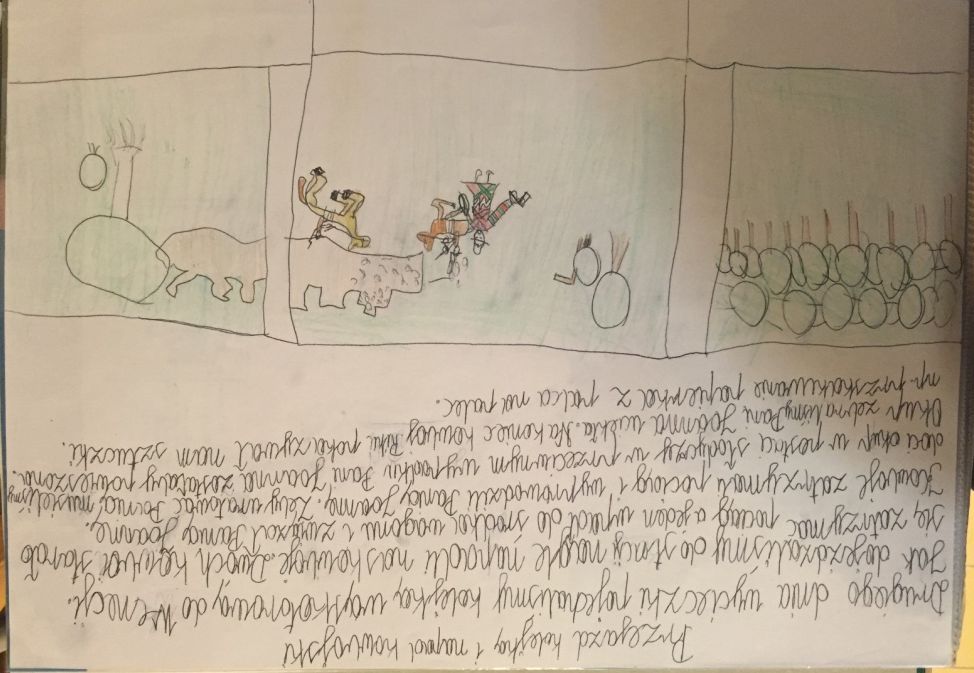 Przejazd kolejką i napad kowbojski
Drugiego dnia wycieczki pojechaliśmy kolejką wąskotorową do Wenecji.
Jak dojeżdżaliśmy do stacji nagle napadli nas kowboje. Dwóch kowboi starało
się zatrzymać pociąg a jeden wpadł do środka wagonu i związał Panią Joannę.
Kowboje zatrzymali pociąg i wyprowadzili Panią Joannę. Żeby uratować Panią musieliśmy
dać okup w postaci słodyczy w przeciwnym wypadku Pani Joanna zostałaby powieszona.
Okup zebraliśmy Pani Joanna uciekła. Na koniec kowboj Riki pokazywał nam sztuczki.
np. przeskakiwanie papierka z palca na palec.